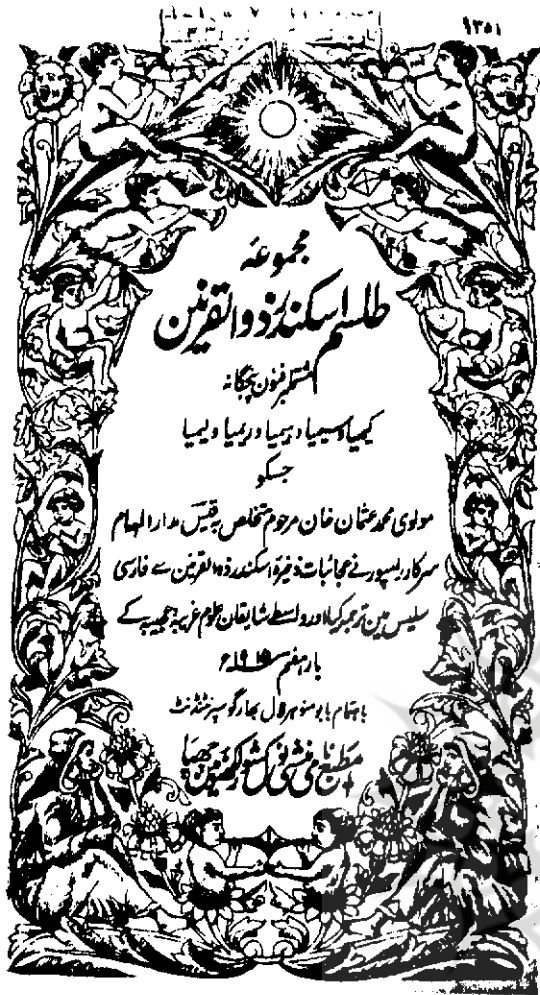 ۹۳۵۱
مجموعہ
طلسم اسکندر ذوالقرنین
مشتملبر فنون پنجگانہ
کیمیا و سیمیا و ہیمیا و ریمیا و لیمیا
جسکو
مولوی محمد عثمان خان مرحوم متخلص بہ قیس مدارالمہام
سرکار رامپور نے عجائبات ذخیرۂ اسکندر ذوالقرنین سے فارسی
سلیس مین ترجمہ کیا اور واسطے شایقان علوم غریبہ عجیبہ کے
بار ہفتم
باہتمام بابو منوہر لال بھارگو سپرنٹنڈنٹ
مطبع نامی منشی نولکشور لکھنؤ مین چھپا